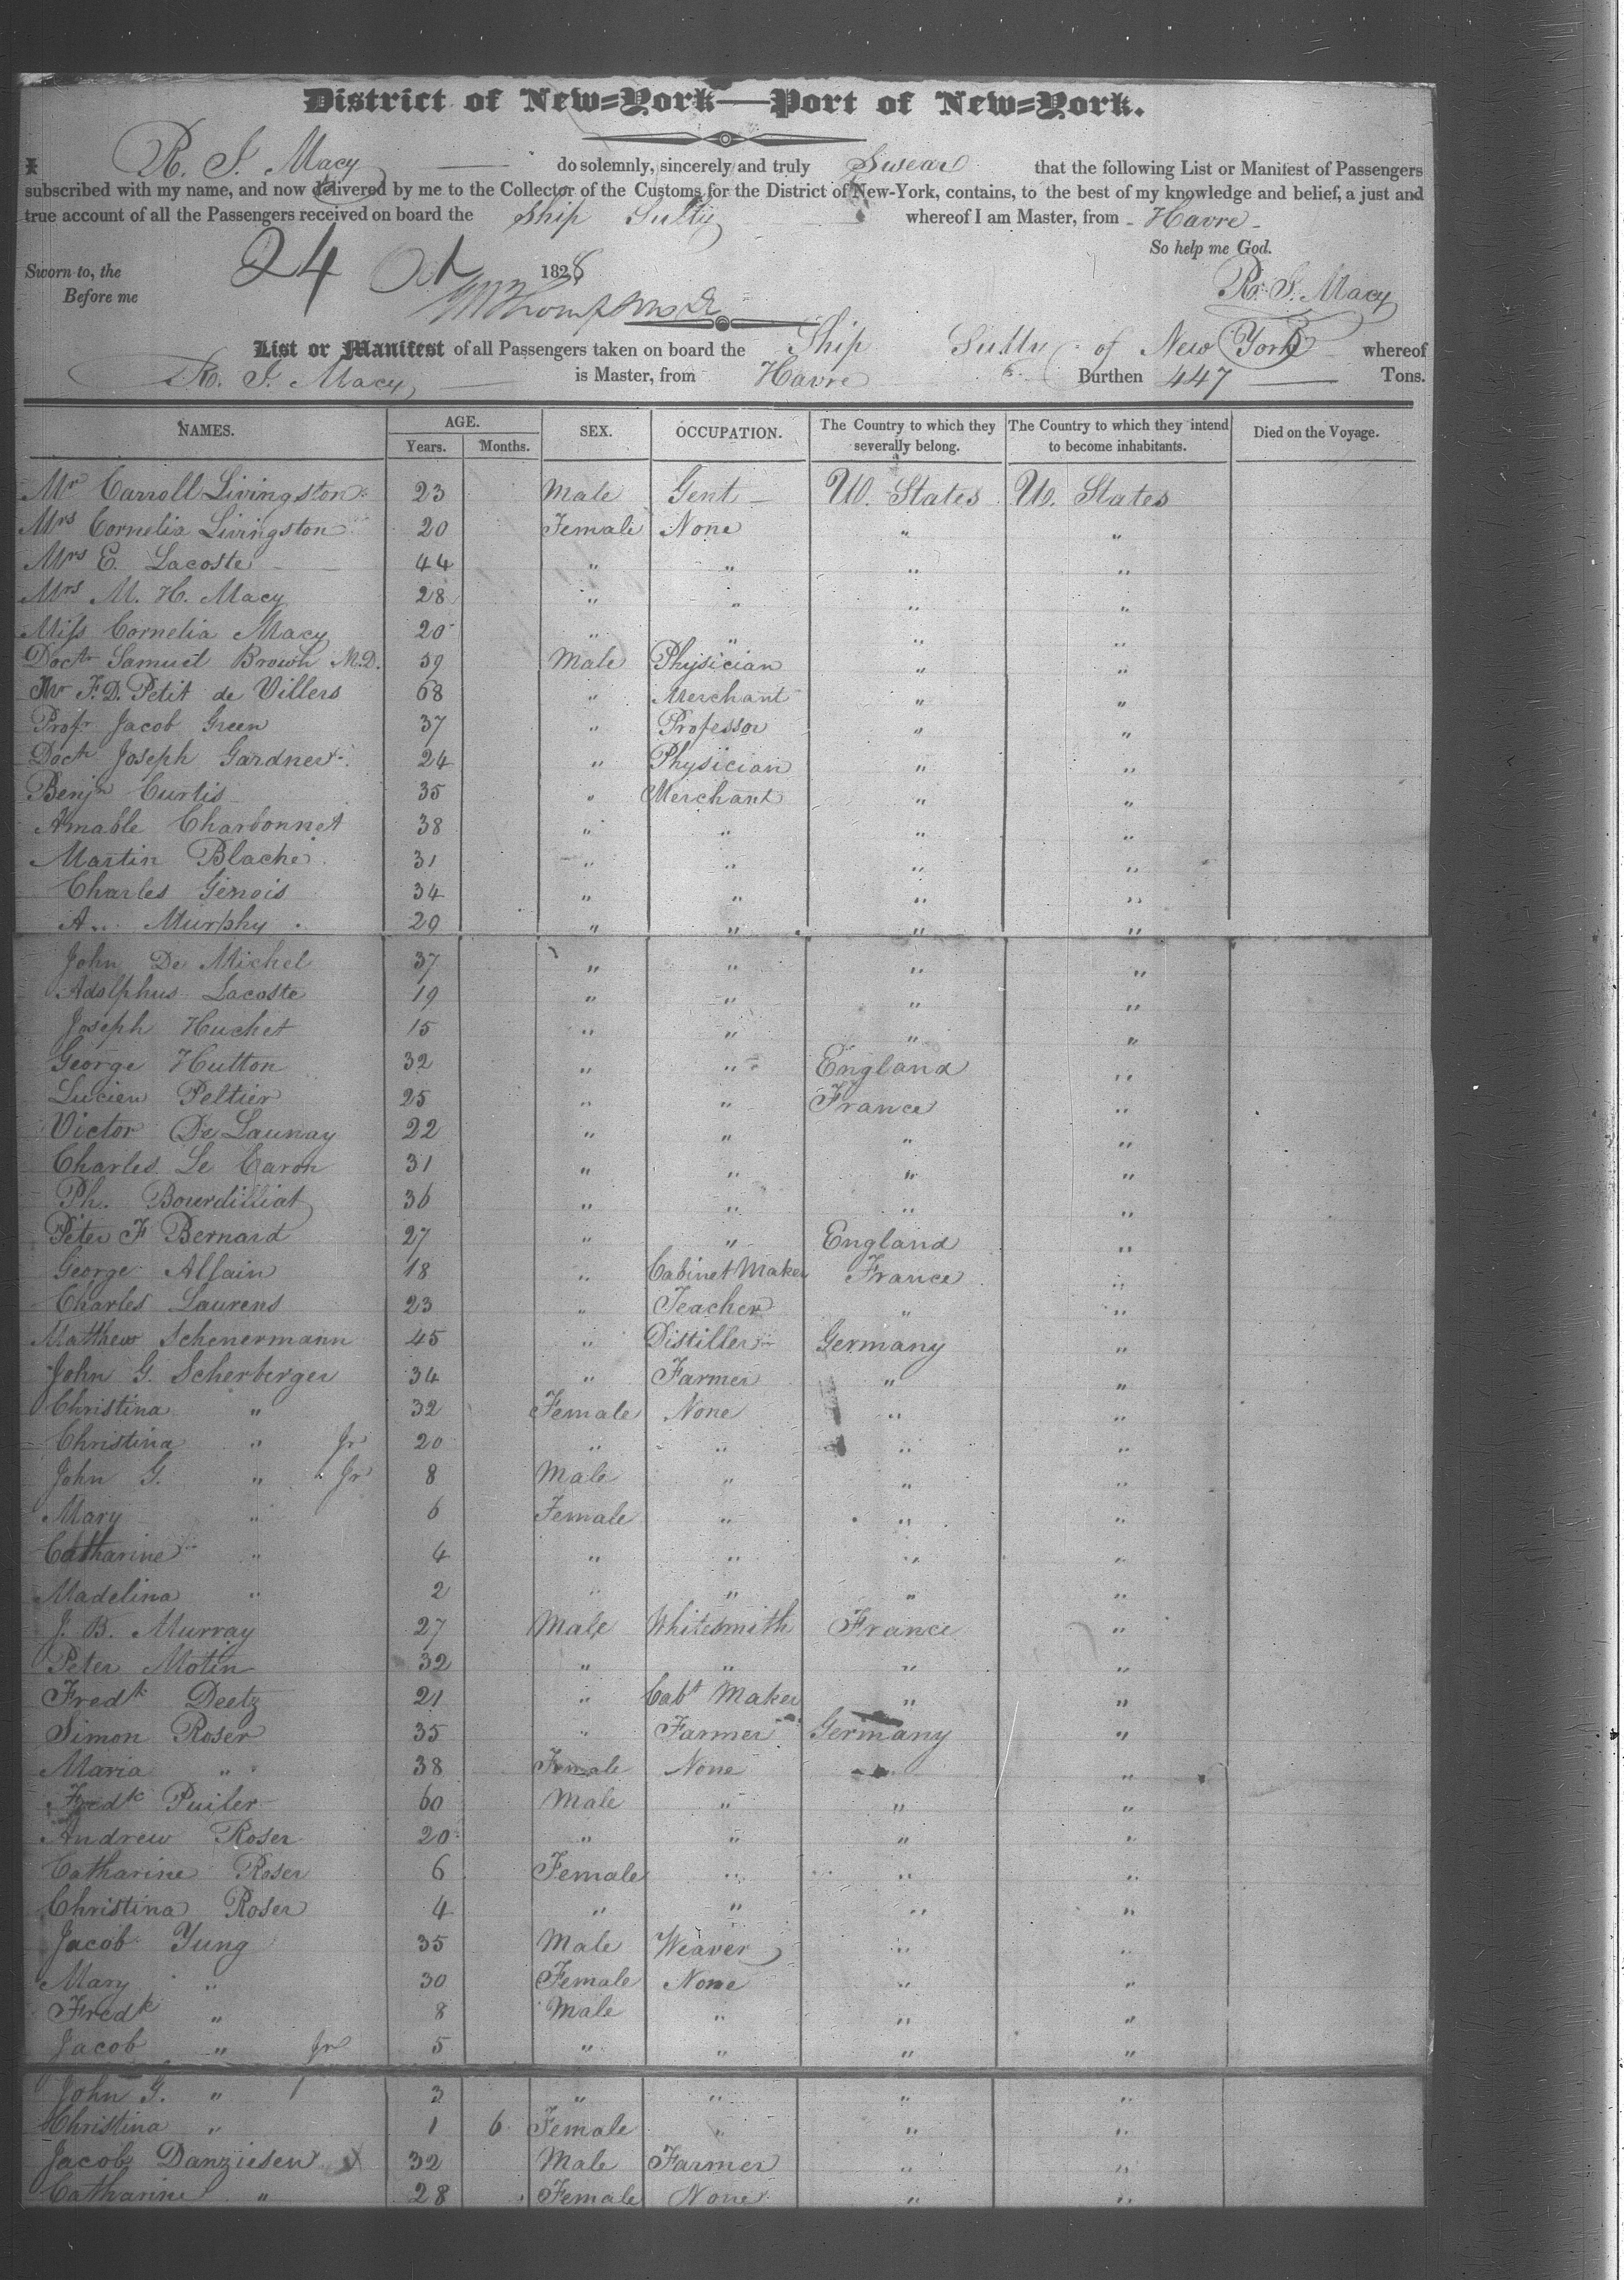 District of New=York—Port of New=York.
I R. J. Macy do solemnly, sincerely and truly Swear that the following List or Manifest of Passengers
subscribed with my name, and now delivered by me to the Collector of the Customs for the District of New-York, contains, to the best of my knowledge and belief, a just and
true account of all the Passengers received on board the Ship Sully whereof I am Master, from Havre
So help me God.
Sworn to, the 24 Oct 1828
Before me
R. J. Macy
List or Manifest of all Passengers taken on board the Ship Sully of New York whereof
R. J. Macy is Master, from Havre Burthen 447 Tons.
NAMES. AGE. Years. Months. SEX. OCCUPATION. The Country to which they severally belong. The Country to which they intend to become inhabitants. Died on the Voyage.
Mr Carroll Livingston 23 Male Gent U. States U. States
Mrs Cornelia Livingston 20 Female None " "
Mrs E. Lacoste 44 " " " "
Mrs M. H. Macy 28 " " " "
Miss Cornelia Macy 20 " " " "
Doctr Samuel Brown M.D. 59 Male Physician " "
Mr F. D. Petit de Villers 68 " Merchant " "
Profr Jacob Green 37 " Professor " "
Doctr Joseph Gardner 24 " Physician " "
Benjn Curtis 35 " Merchant " "
Amable Charbonnet 38 " " " "
Martin Blache 31 " " " "
Charles Genois 34 " " " "
A. Murphy 29 " " " "
John De Michel 37 " " " "
Adolphus Lacoste 19 " " " "
Joseph Huchet 15 " " " "
George Hutton 32 " " England "
Lucien Peltier 25 " " France "
Victor De Launay 22 " " " "
Charles Le Caron 31 " " " "
Ph. Bourdilliat 36 " " " "
Peter F Bernard 27 " " England "
George Allain 18 " Cabinet Maker France "
Charles Laurens 23 " Teacher " "
Matthew Schenermann 45 " Distiller Germany "
John G. Scherberger 34 " Farmer " "
Christina " 32 Female None " "
Christina " Jr 20 " " " "
John G. " Jr 8 Male " " "
Mary " 6 Female " " "
Catharine " 4 " " " "
Madelina " 2 " " " "
J. B. Murray 27 Male Whitesmith France "
Peter Motin 32 " " " "
Fredk Deetz 21 " Cabt Maker " "
Simon Roser 35 " Farmer Germany "
Maria " 38 Female None " "
Fredk 60 Male " " "
Andrew Roser 20 " " " "
Catharine Roser 6 Female " " "
Christina Roser 4 " " " "
Jacob Yung 35 Male Weaver " "
Mary " 30 Female None " "
Fredk " 8 Male " " "
Jacob " Jr 5 " " " "
John G. " 3 " " " "
Christina " 1 6 Female " " "
Jacob Danziesen 32 Male Farmer " "
Catharine " 28 Female None " "